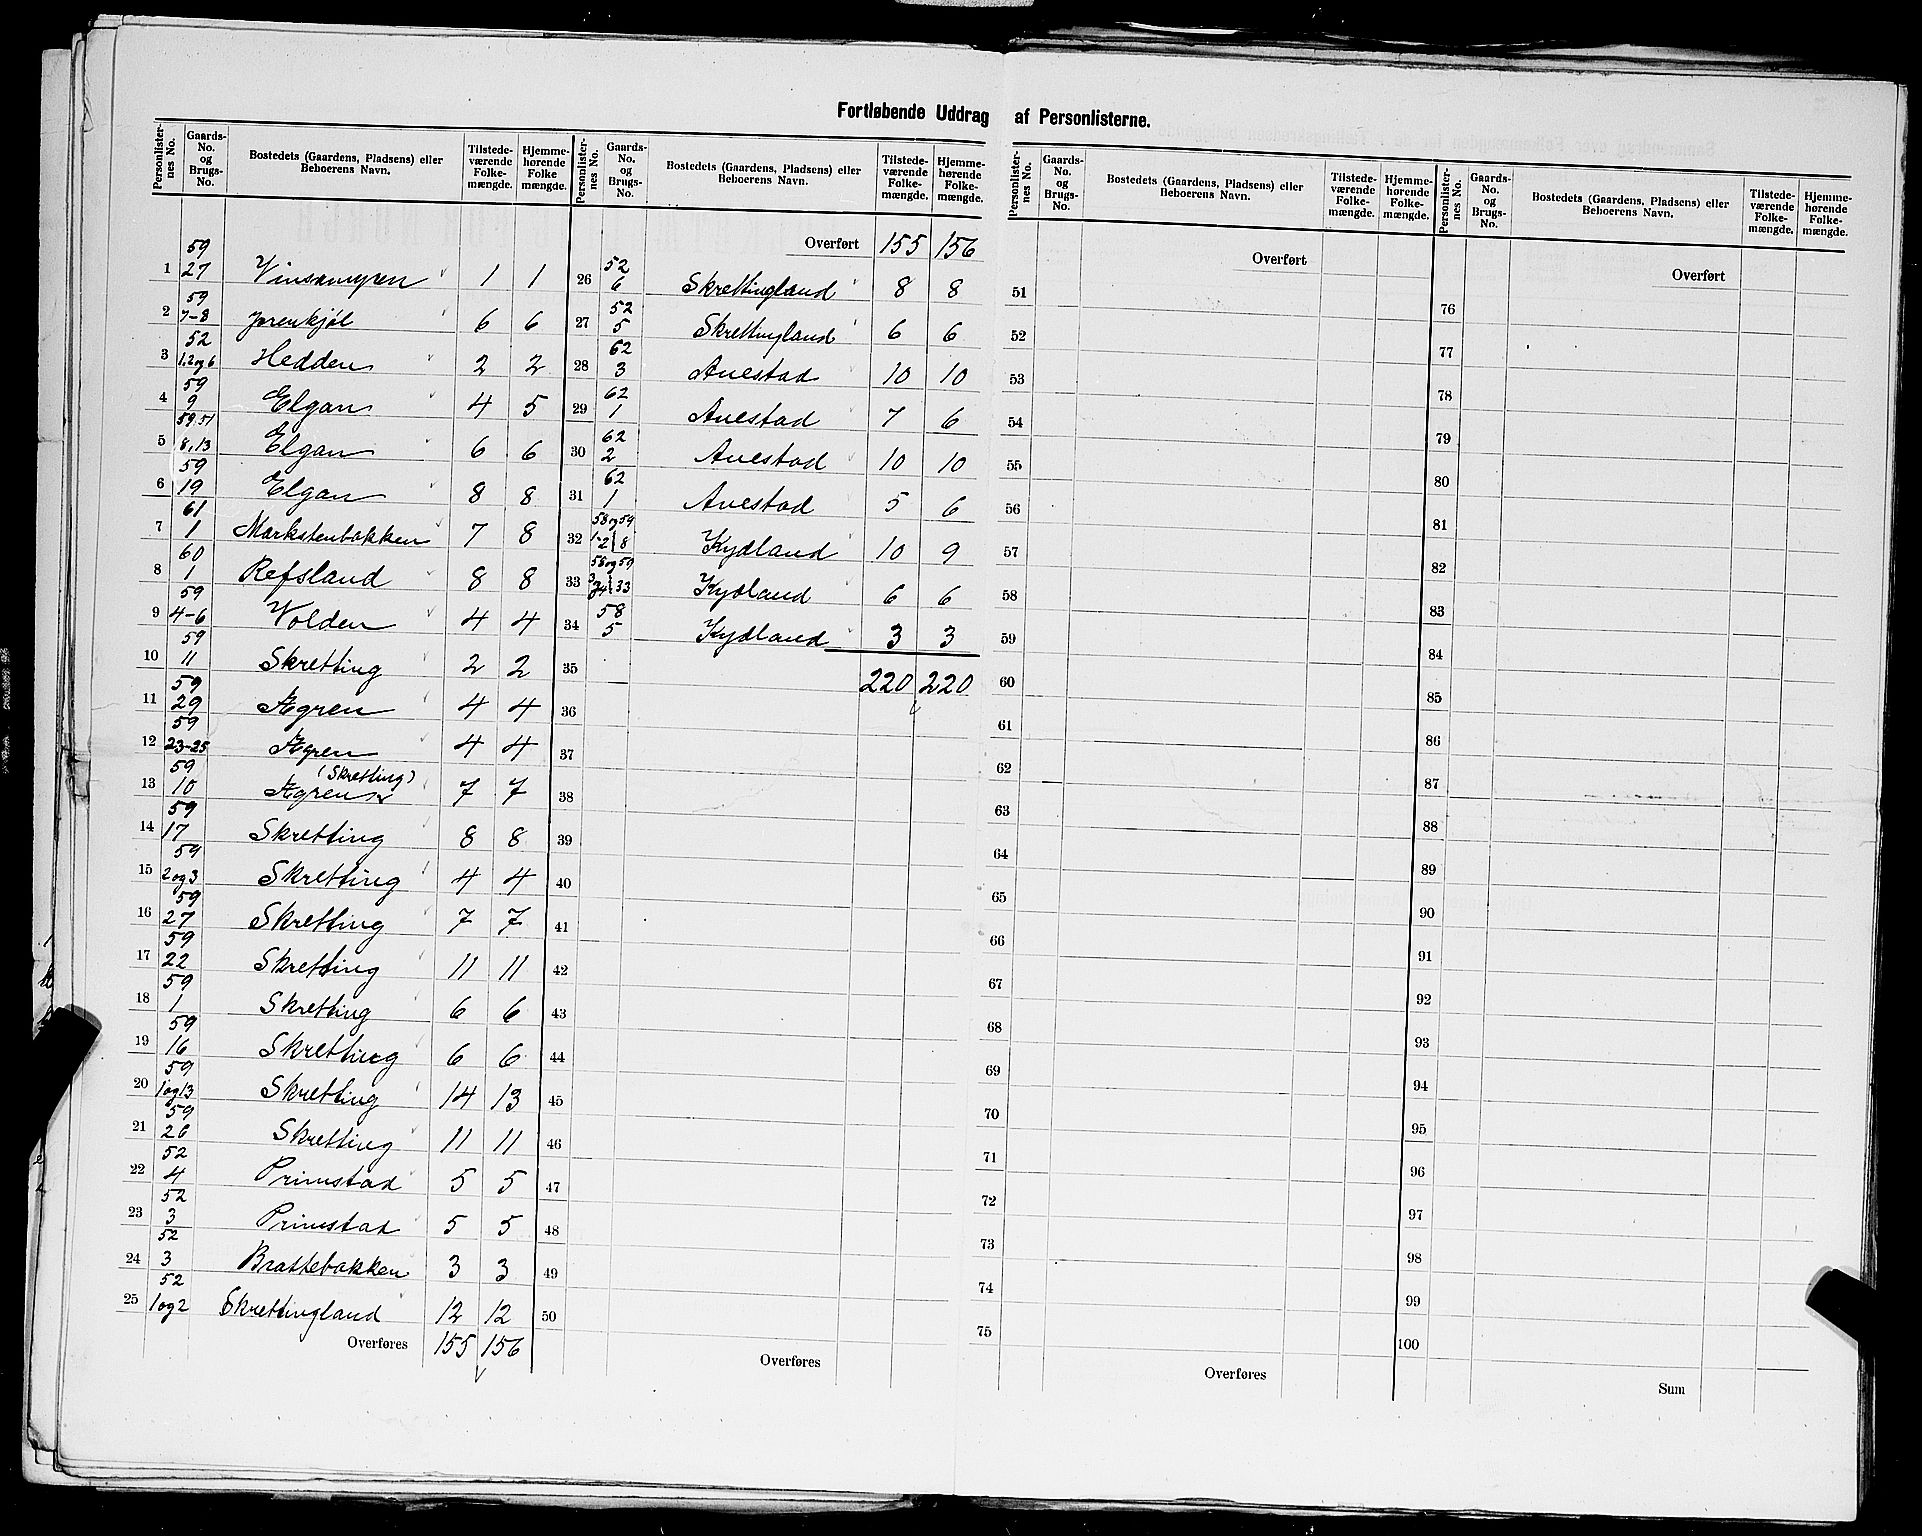 Fortløbende Uddrag af Personlisterne.
Personlisternes No. Gaards-No. og Brugs-No. Bostedets (Gaardens, Pladsens) eller Beboerens Navn. Tilstedeværende Folkemængde. Hjemmehørende Folkemængde.
1 59 27 Vinsamyren 1 1
2 59 7-8 6 6
3 52 1,2 og 6 Hedden 2 2
4 59 9 Elgan 4 5
5 59,51 8,13 Elgan 6 6
6 59 19 Elgan 8 8
7 61 1 Markstenbakken 7 8
8 60 1 Refsland 8 8
9 59 4-6 Volden 4 4
10 59 11 Skretting 2 2
11 59 29 Ægren 4 4
12 59 23-25 Ægren 4 4
13 59 10 Ægren (Skretting) 7 7
14 59 17 Skretting 8 8
15 59 2 og 3 Skretting 4 4
16 59 27 Skretting 7 7
17 59 22 Skretting 11 11
18 59 1 Skretting 6 6
19 59 16 Skretting 6 6
20 59 1 og 13 Skretting 14 13
21 59 26 Skretting 11 11
22 52 4 Primstad 5 5
23 52 3 Primstad 5 5
24 52 3 Brattebakken 3 3
25 52 1 og 2 Skrettingland 12 12
Overføres 155 156
Personlisternes No. Gaards-No. og Brugs-No. Bostedets (Gaardens, Pladsens) eller Beboerens Navn. Tilstedeværende Folkemængde. Hjemmehørende Folkemængde.
Overført 155 156
26 52 6 Skrettingland 8 8
27 52 5 Skrettingland 6 6
28 62 3 Auestad 10 10
29 62 1 Auestad 7 6
30 62 2 Auestad 10 10
31 62 1 Auestad 5 6
32 58 og 59 1-2 8 Kydland 10 9
33 58 og 59 3 og 4 33 Kydland 6 6
34 58 5 Kydland 3 3
35 220 220
36
37
38
39
40
41
42
43
44
45
46
47
48
49
50
Overføres
Personlisternes No. Gaards-No. og Brugs-No. Bostedets (Gaardens, Pladsens) eller Beboerens Navn. Tilstedeværende Folkemængde. Hjemmehørende Folkemængde.
Overført
51
52
53
54
55
56
57
58
59
60
61
62
63
64
65
66
67
68
69
70
71
72
73
74
75
Overføres
Personlisternes No. Gaards-No. og Brugs-No. Bostedets (Gaardens, Pladsens) eller Beboerens Navn. Tilstedeværende Folkemængde. Hjemmehørende Folkemængde.
Overført
76
77
78
79
80
81
82
83
84
85
86
87
88
89
90
91
92
93
94
95
96
97
98
99
100
Sum